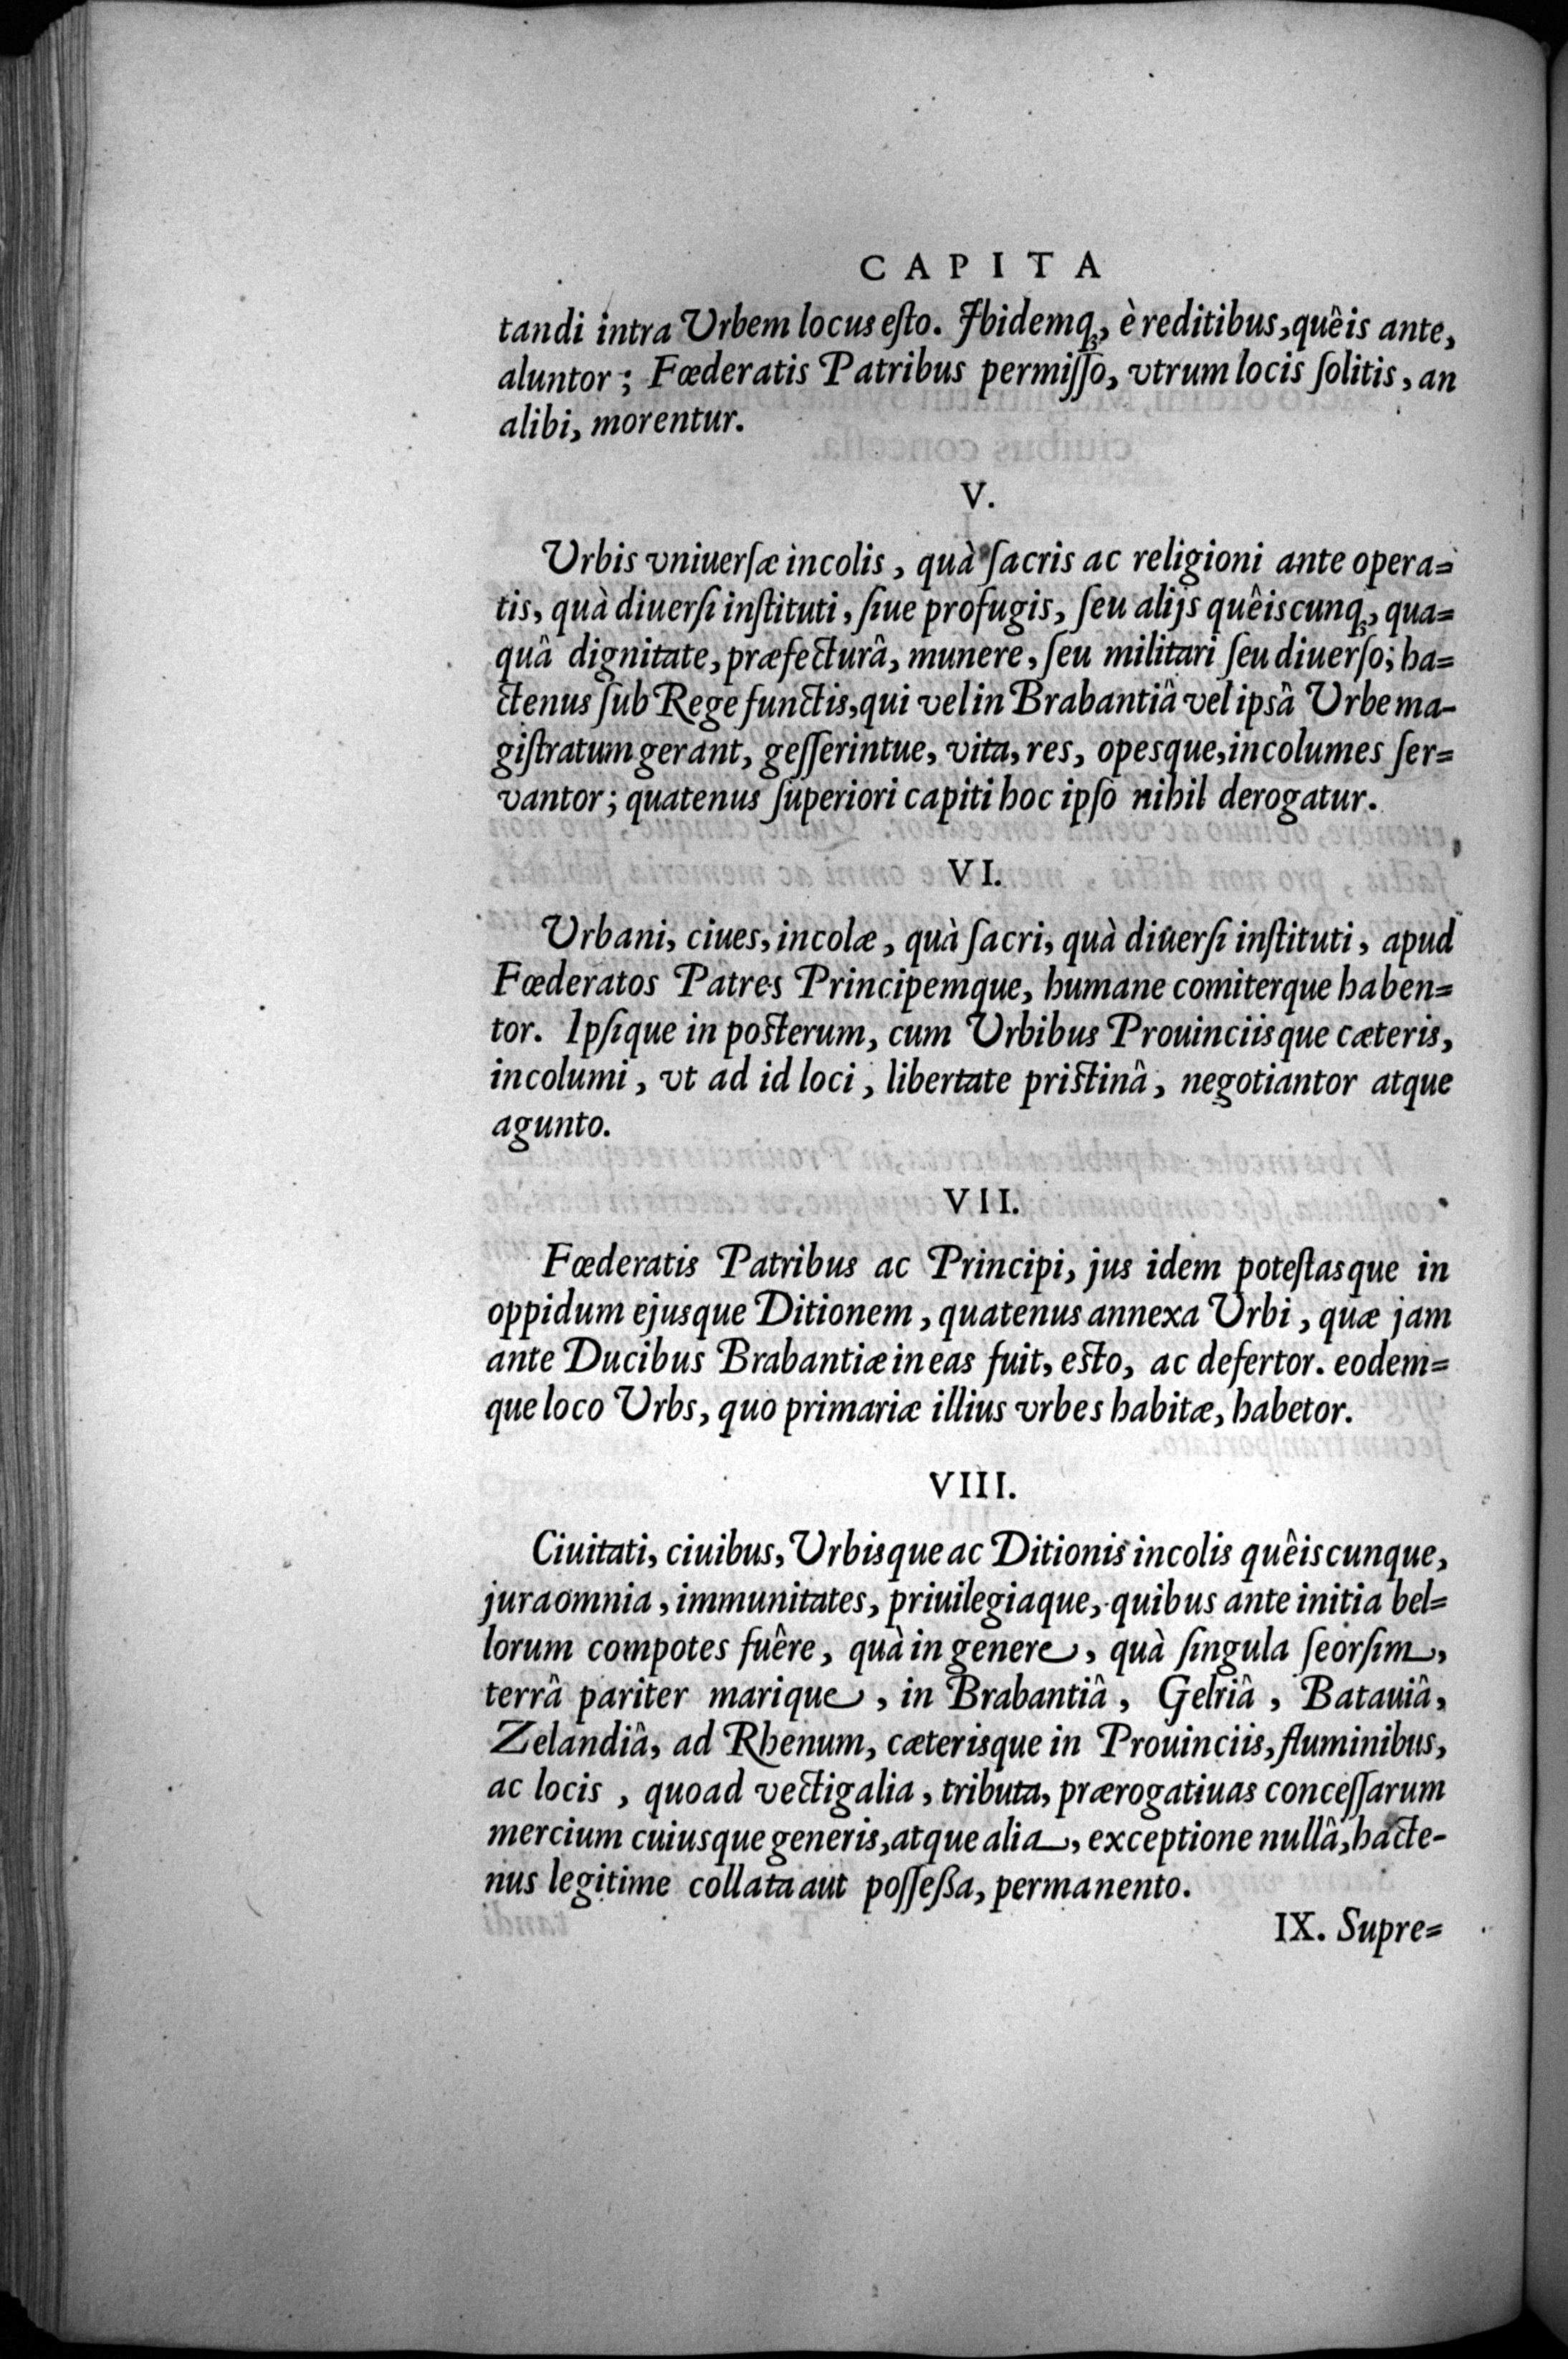 CAPITA
tandi intra Urbem locus eſto. Ibidemq́ꝫ, è reditibus, quêis ante,
aluntor; Fœderatis Patribus permiſſo, vtrum locis ſolitis, an
alibi, morentur.
V.
Urbis vniuerſæ incolis, quà ſacris ac religioni ante opera=
tis, quà diuerſi inſtituti, ſiue profugis, ſeu alijs quêiscunqꝫ, qua=
quâ dignitate, præfecturâ, munere, ſeu militari ſeu diuerſo; ha=
ctenus ſub Rege functis, qui vel in Brabantiâ vel ipsâ Urbe ma-
giſtratum gerant, geſſerintue, vita, res, opesque, incolumes ſer=
vantor; quatenus ſuperiori capiti hoc ipſo nihil derogatur.
VI.
Urbani, ciues, incolæ, quà ſacri, quà diuerſi inſtituti, apud
Fœderatos Patres Principemque, humane comiterque haben=
tor. Ipſique in poſterum, cum Urbibus Prouinciisque cæteris,
incolumi, vt ad id loci, libertate priſtinâ, negotiantor atque
agunto.
VII.
Fœderatis Patribus ac Principi, jus idem poteſtasque in
oppidum ejusque Ditionem, quatenus annexa Urbi, quæ jam
ante Ducibus Brabantiæ in eas fuit, eſto, ac defertor. eodem=
que loco Urbs, quo primariæ illius vrbes habitæ, habetor.
VIII.
Ciuitati, ciuibus, Urbisque ac Ditionis incolis quêiscunque,
jura omnia, immunitates, priuilegiaque, quibus ante initia bel=
lorum compotes fuêre, quà in genere, quà ſingula ſeorſim,
terrâ pariter marique, in Brabantiâ, Gelriâ, Batauiâ,
Zelandiâ, ad Rhenum, cæterisque in Prouinciis, fluminibus,
ac locis, quoad vectigalia, tributa, prærogatiuas conceſſarum
mercium cuiusque generis, atque alia, exceptione nullâ, hacte-
nus legitime collata aut poſſeßa, permanento.
IX. Supre=